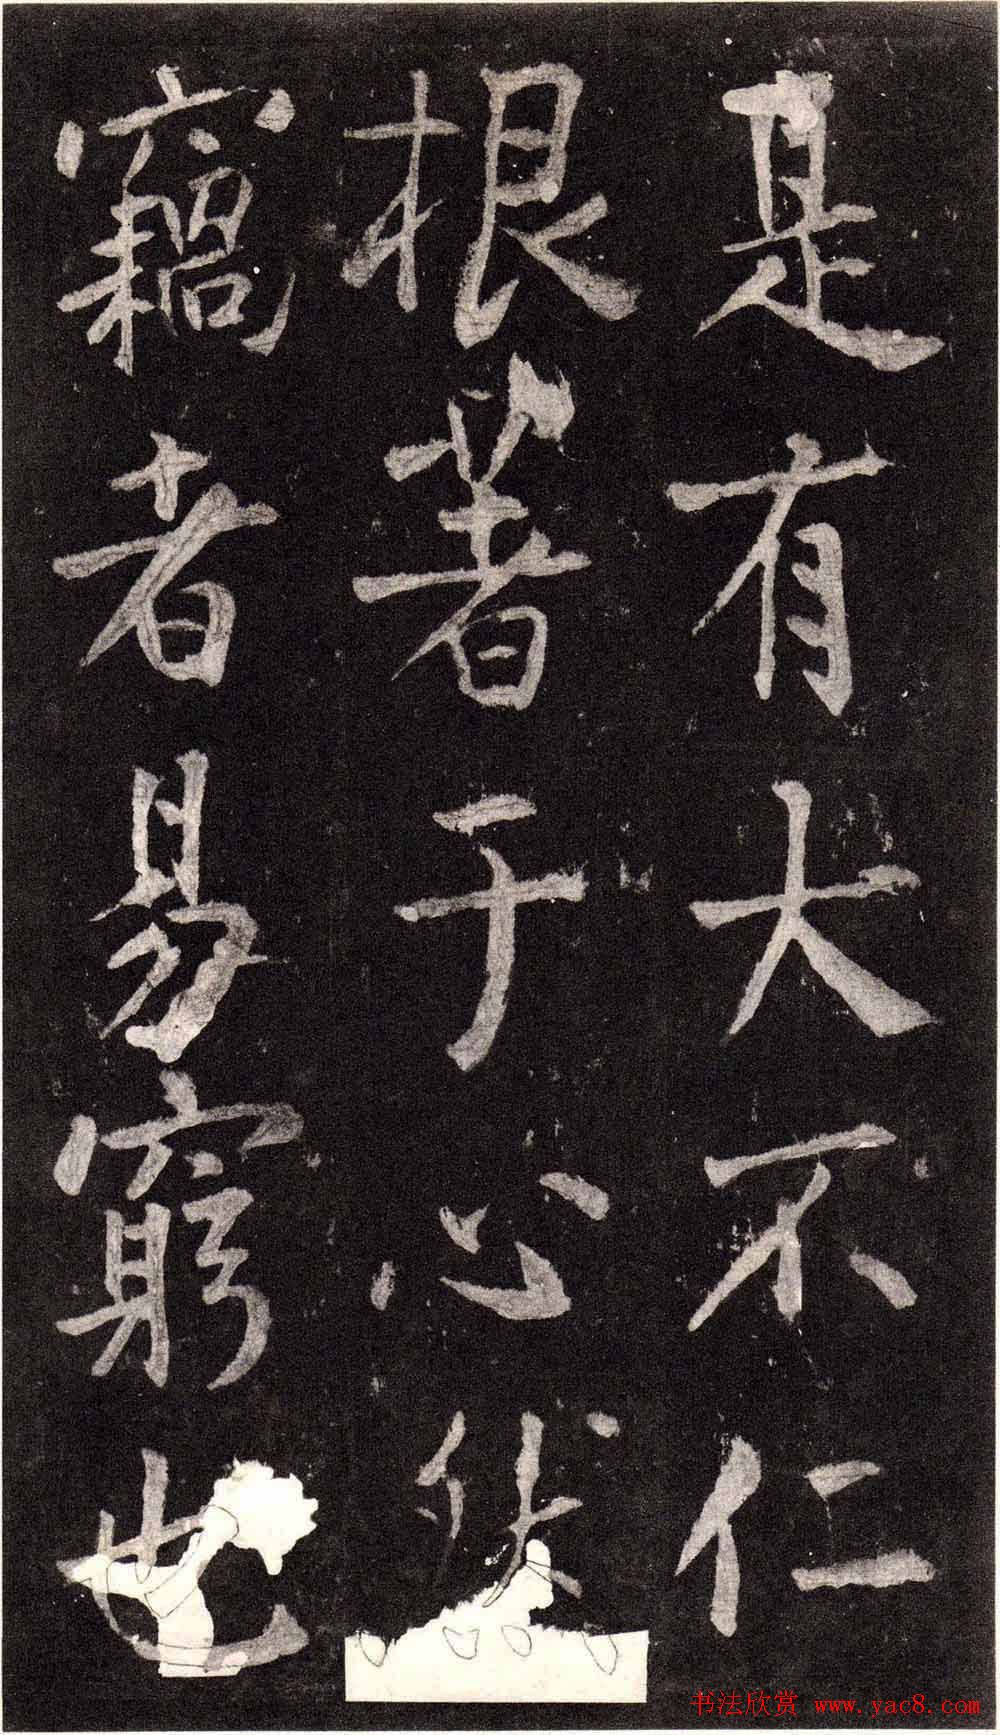 是有大不仁
根著于心然
竊者易窮也
书法欣赏 www.yac8.com